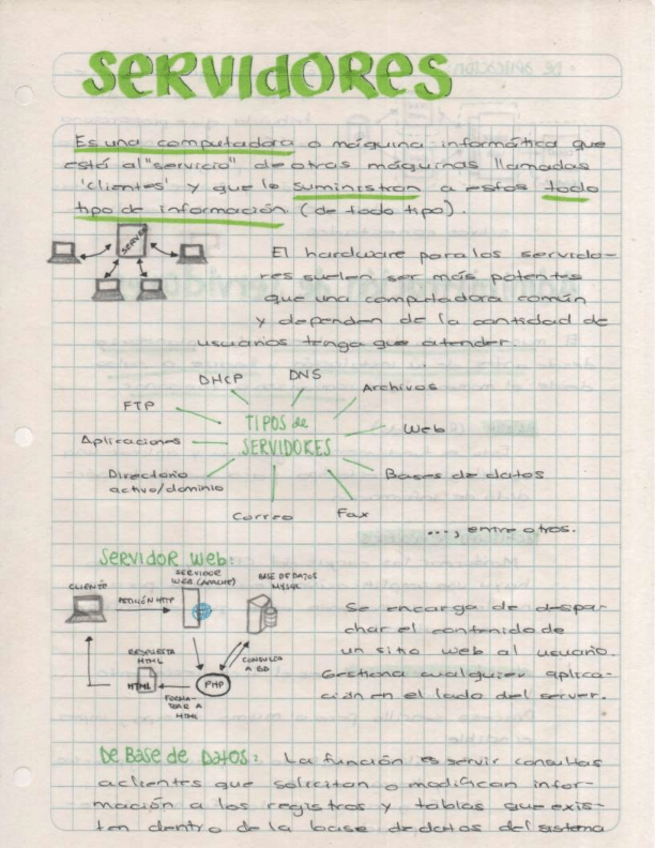 SERVIDORES
Es una computadora o máquina informática que
está al "servicio" de otras máquinas llamadas
'clientes' y que le suministran a estos todo
tipo de información (de todo tipo).
SERVER
El hardware para los servido-
res suelen ser más potentes
que una computadora común
y dependen de la cantidad de
usuarios tenga que atender.
TIPOS de
SERVIDORES
DHCP
DNS
Archivos
FTP
Web
Aplicaciones
Bases de datos
Directorio
activo/dominio
Correo
Fax
..., entre otros.
Servidor Web:
CLIENTE
PETICIÓN HTTP
SERVIDOR
WEB (APACHE)
BASE DE DATOS
MYSQL
RESPUESTA
HTML
HTML
FORMA-
TEAR A
HTML
PHP
CONSULTA
A BD
Se encarga de despa-
char el contenido de
un sitio web al usuario.
Gestiona cualquier aplica-
ción en el lado del server.
De Base de Datos: La función es servir consultas
a clientes que solicitan o modifican infor-
mación a los registros y tablas que exis-
ten dentro de la base de datos del sistema